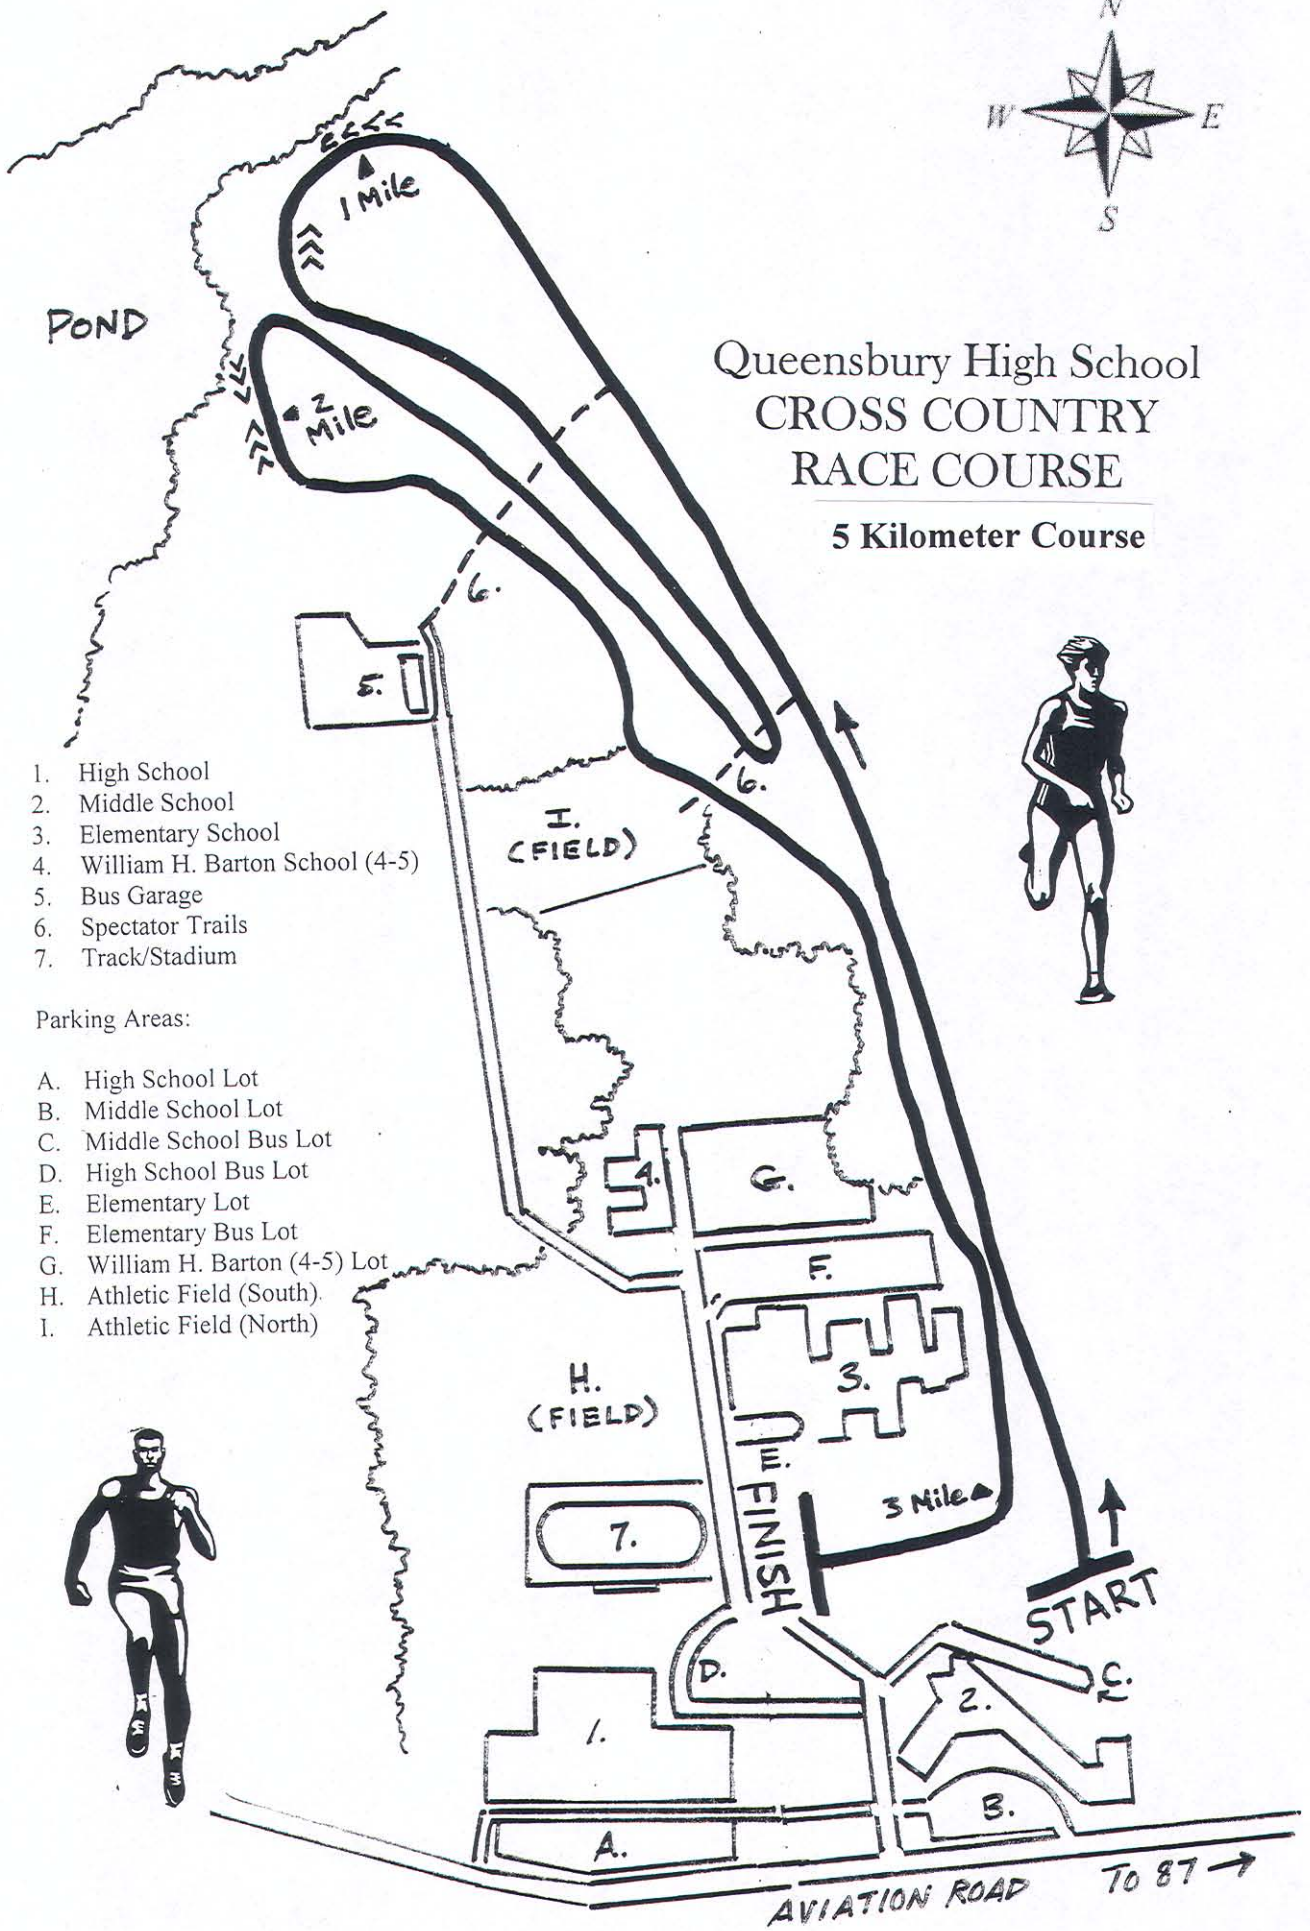 N
W E
S
1 Mile
POND
Queensbury High School
CROSS COUNTRY
RACE COURSE
5 Kilometer Course
2
Mile
6.
5.
6.
I.
(FIELD)
1. High School
2. Middle School
3. Elementary School
4. William H. Barton School (4-5)
5. Bus Garage
6. Spectator Trails
7. Track/Stadium
Parking Areas:
A. High School Lot
B. Middle School Lot
C. Middle School Bus Lot
D. High School Bus Lot
E. Elementary Lot
F. Elementary Bus Lot
G. William H. Barton (4-5) Lot
H. Athletic Field (South)
I. Athletic Field (North)
4.
G.
F.
3.
H.
(FIELD)
E.
FINISH
3 Mile
7.
START
D.
C.
2.
1.
B.
A.
AVIATION ROAD
TO 87 →